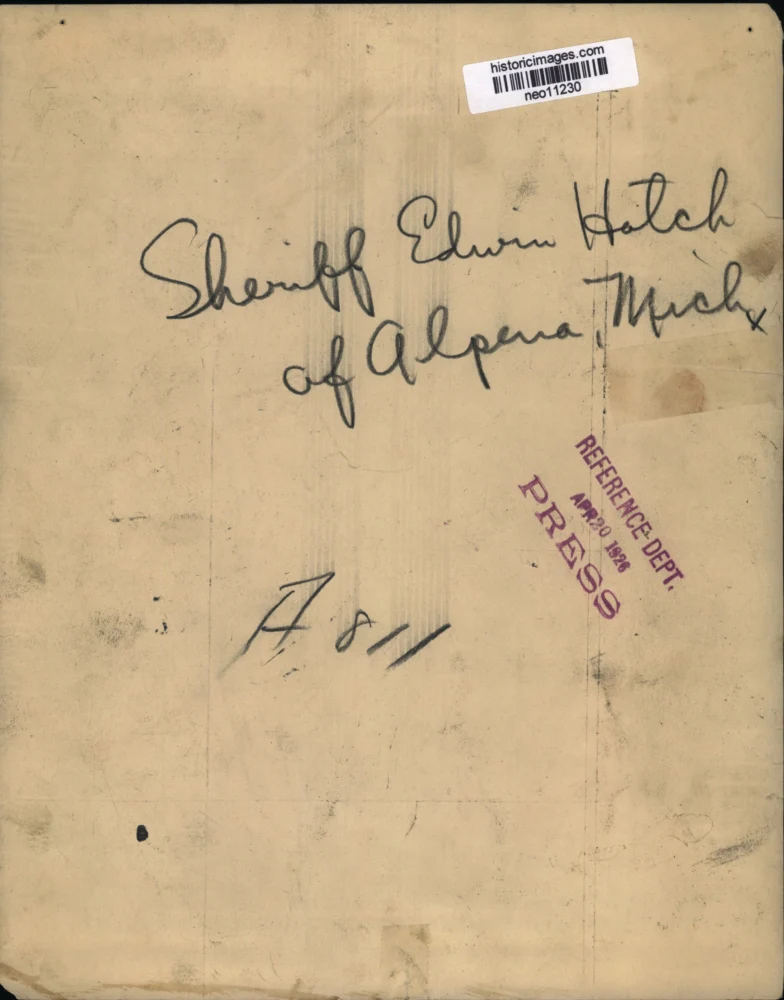 historicimages.com
neo11230
Sheriff Edwin Hatch
of Alpena, Mich
x
REFERENCE DEPT.
APR 20 1926
PRESS
A 811